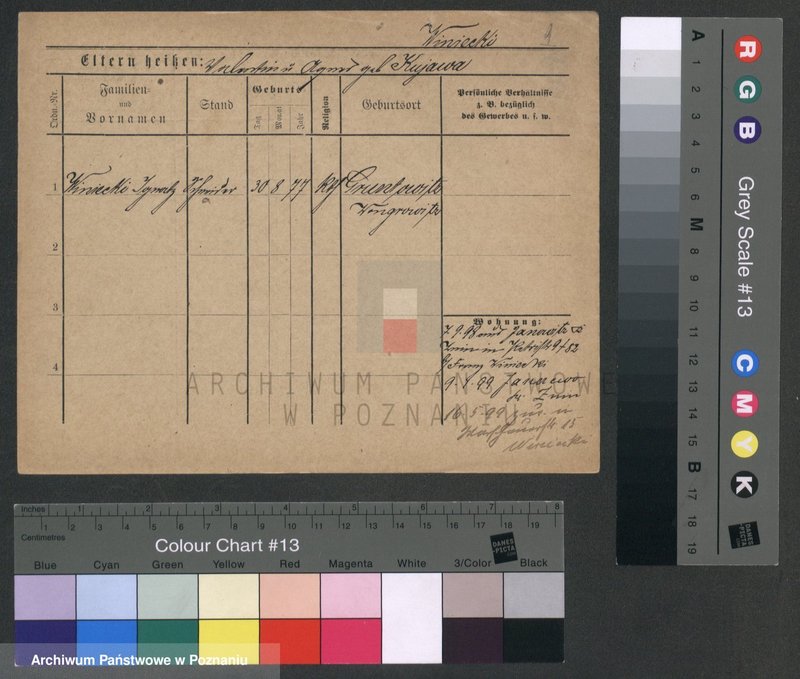 Winiecki
9
Eltern heißen: Valentin u Agnes geb Kujawa
Ordn.-Nr.
Familien-
und
Vornamen
Stand
Geburts
Tag
Monat
Jahr
Religion
Geburtsort
Persönliche Verhältnisse
z. B. bezüglich
des Gewerbes u. s. w.
1 Winiecki Ignatz Schneider 30 8 77 kth
Wongrowitz
2
3
4
Wohnung:
7.9.98 aus Janowitz
Znin in
b/ Franz Winiecki
9.1.99 Janowo
Kr. Znin
16.5.99
15
Winiecki
ARCHIWUM PAŃSTWOWE
W POZNANIU
Inches 1 2 3 4 5 6 7 8
Centimetres 1 2 3 4 5 6 7 8 9 10 11 12 13 14 15 16 17 18 19
Colour Chart #13
DANES
-PICTA
.COM
Blue Cyan Green Yellow Red Magenta White 3/Color Black
Archiwum Państwowe w Poznaniu
A 1 2 3 4 5 6 M 8 9 10 11 12 13 14 15 B 17 18 19
R G B
Grey Scale #13
C M Y K
DANES
-PICTA
.COM